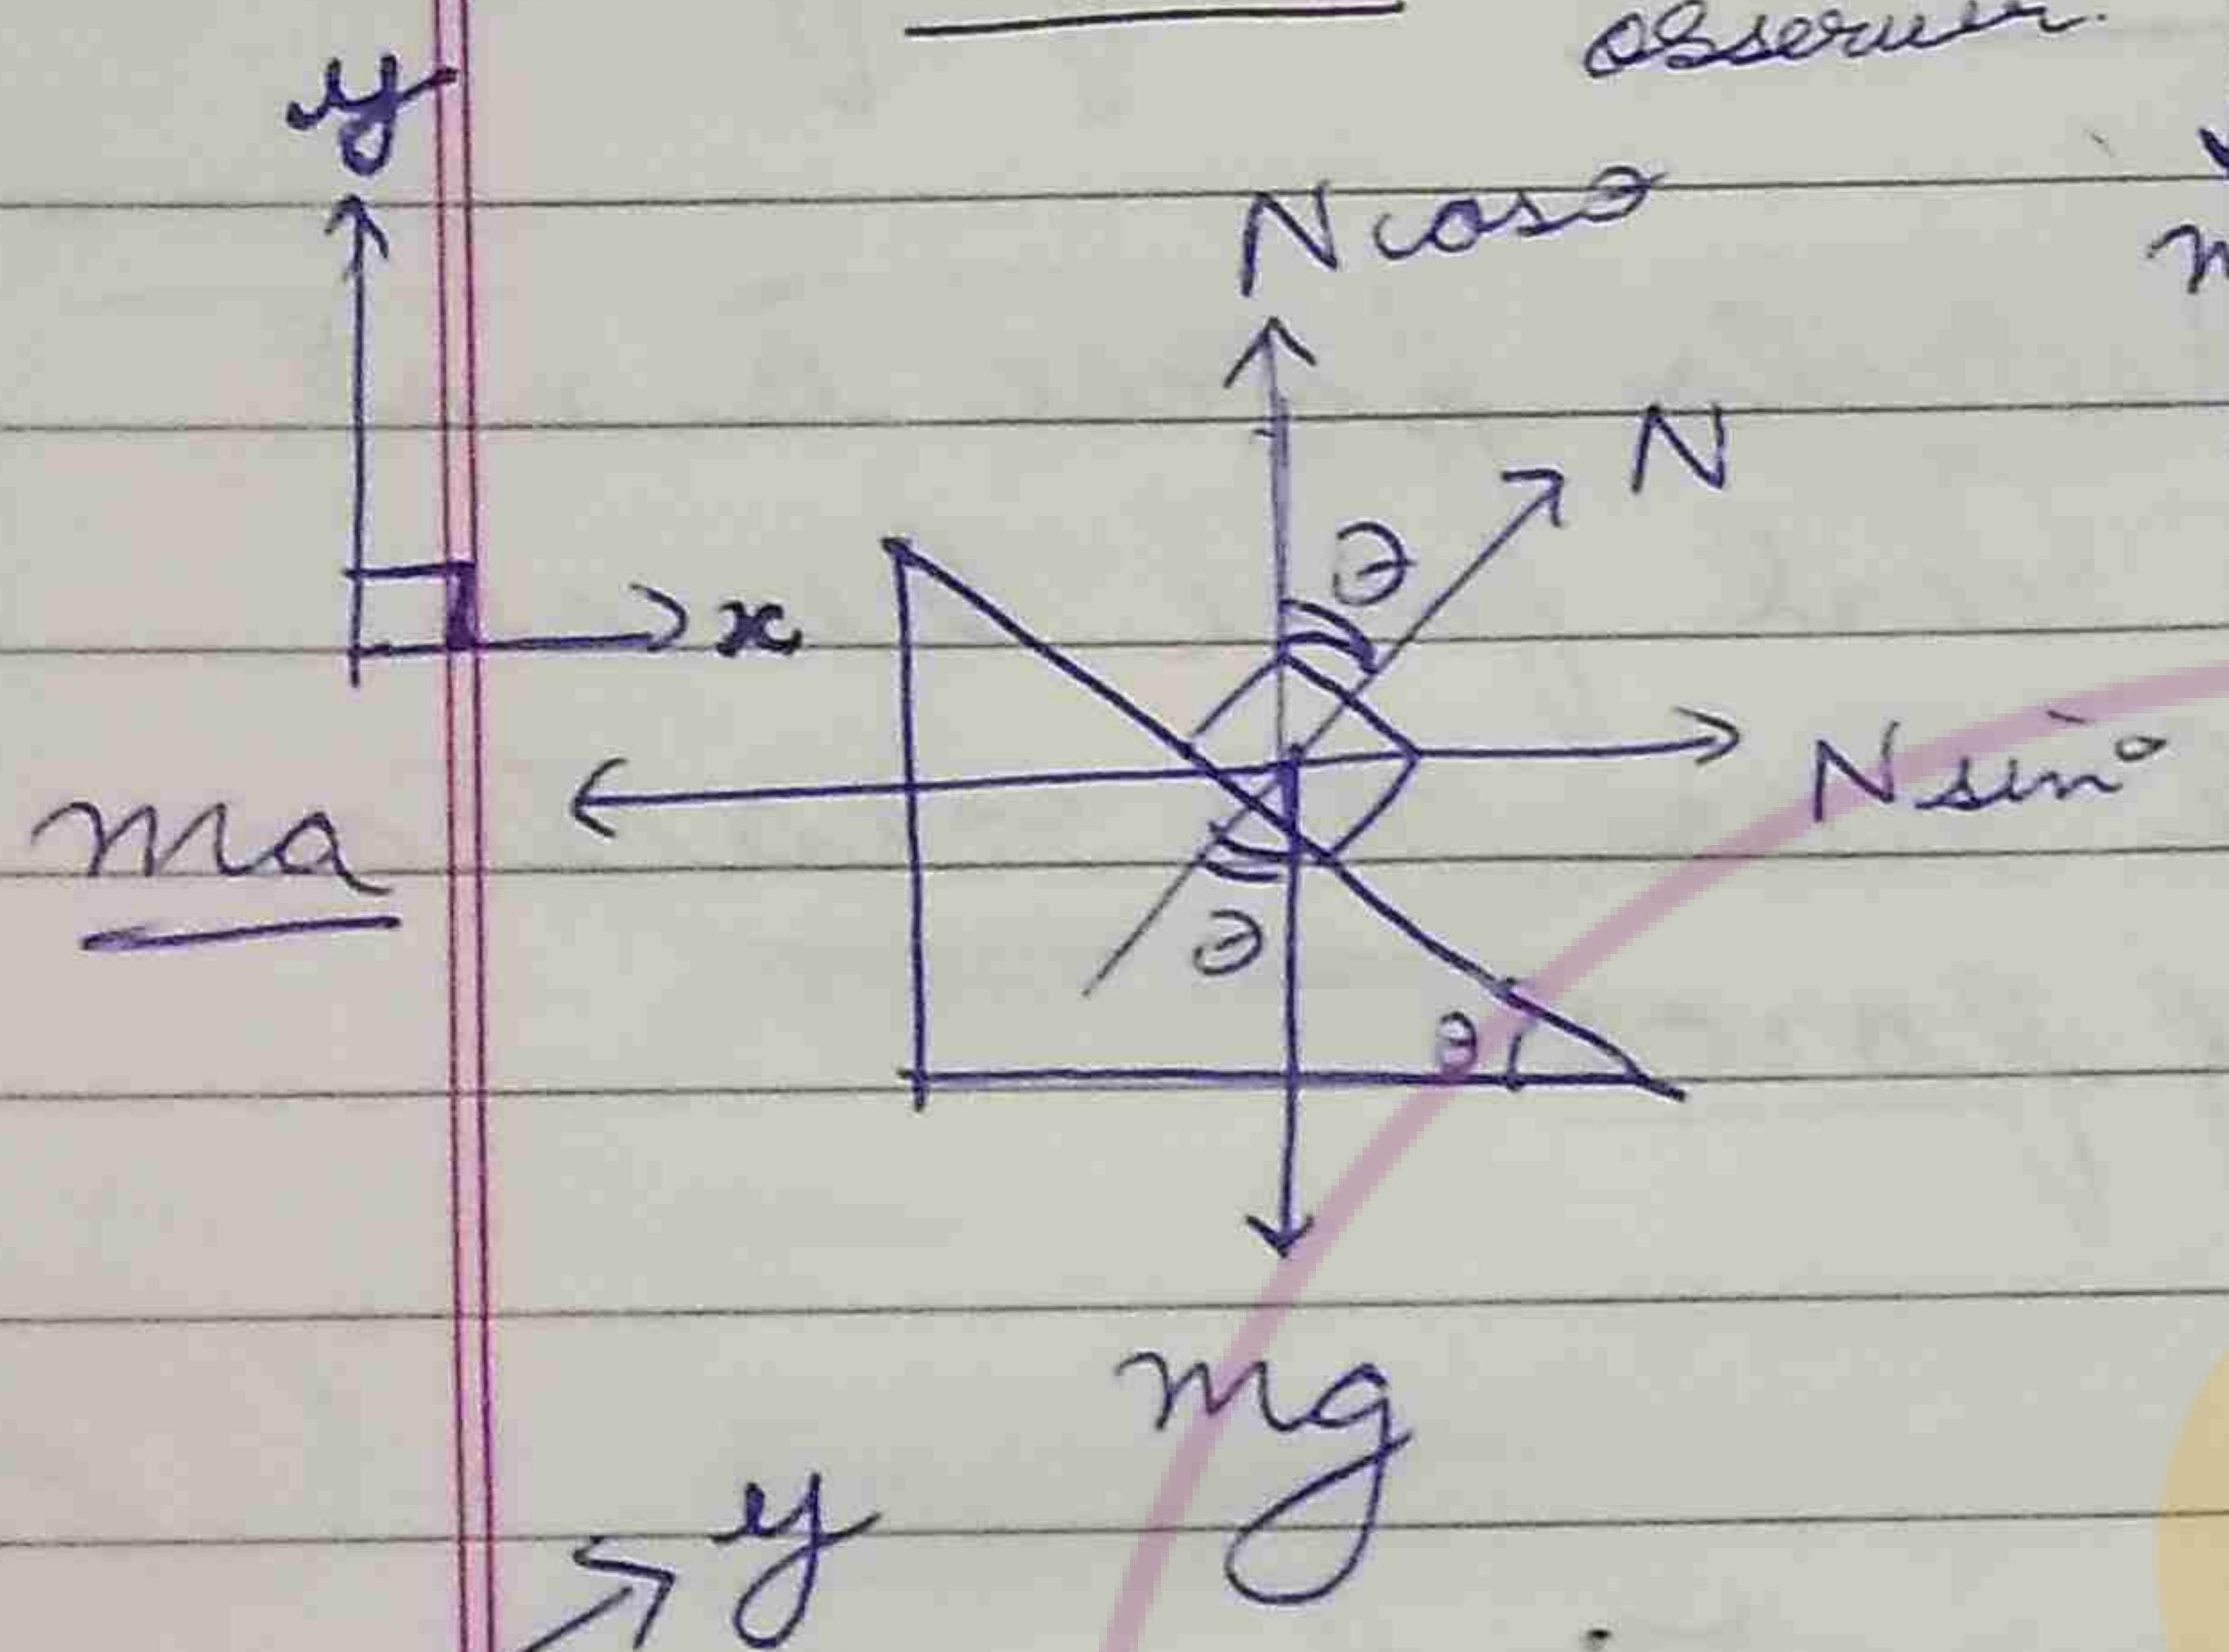 observer.
y
N cosθ
N
θ
x
N sinθ
ma
θ
θ
mg
y